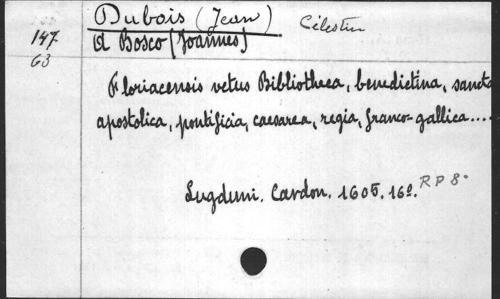 Dubois (Jean) Célestin
147 A Bosco (Joannes)
63
Floriacensis vetus Bibliotheca, benedictina, sancta
apostolica, pontificia, caesarea, regia, franco-gallica....
Lugduni. Cardon. 1605. 16º. RP 8º